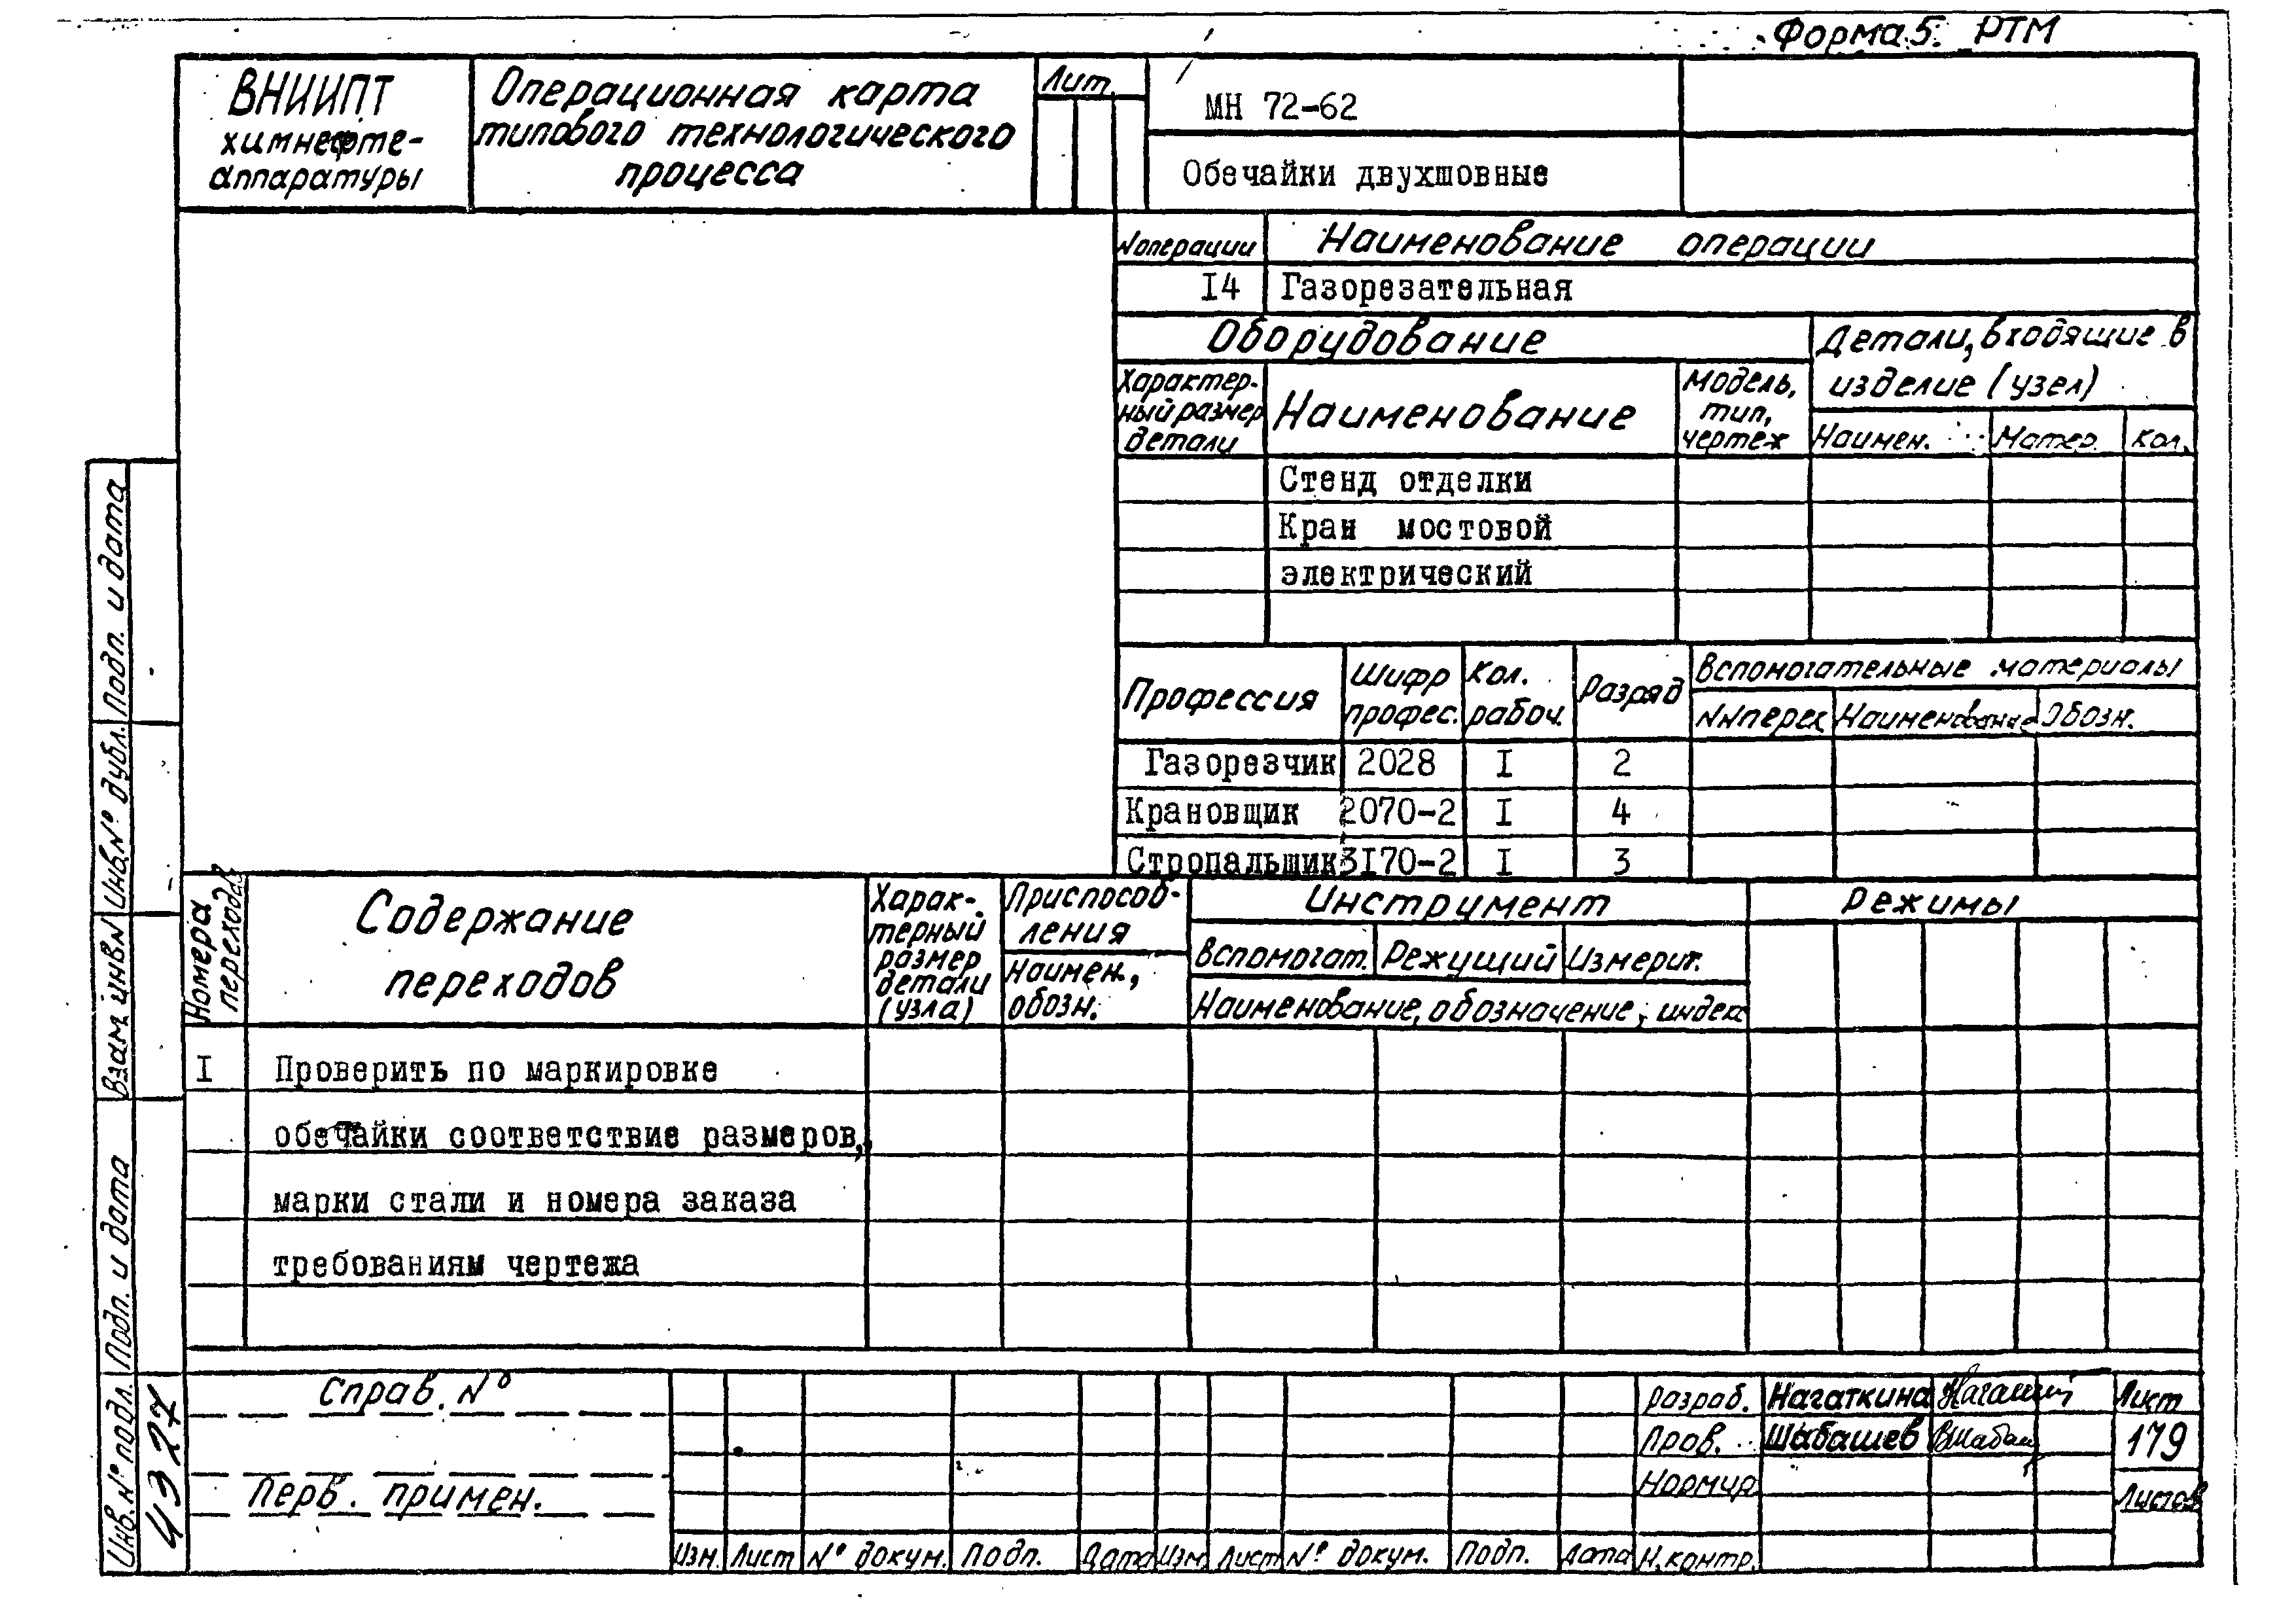 Форма 5. РТМ
ВНИИПТ
химнефте-
аппаратуры
Операционная карта
типового технологического
процесса
Лит.
МН 72-62
Обечайки двухшовные
№ операции
Наименование операции
I4
Газорезательная
Оборудование
Детали, входящие в
изделие (узел)
Характер-
ный размер
детали
Наименование
Модель,
тип,
чертеж
Наимен.
Матер.
Кол.
Стенд отделки
Кран мостовой
электрический
Профессия
Шифр
профес.
Кол.
рабоч.
Разряд
Вспомогательные материалы
№№ перех
Наименование
Обозн.
Газорезчик 2028 I 2
Крановщик 2070-2 I 4
Стропальщик 3I70-2 I 3
Номера
переходов
Содержание
переходов
Харак-
терный
размер
детали
(узла)
Приспособ-
ления
Наимен.,
обозн.
Инструмент
Вспомогат.
Режущий
Измерит.
Наименование, обозначение, индекс
Режимы
I
Проверить по маркировке
обечайки соответствие размеров,
марки стали и номера заказа
требованиям чертежа
Подп. и дата
Инв.№ дубл.
Взам. инв.№
Подп. и дата
Инв. № подл.
4327
Справ. №
Перв. примен.
Изм. Лист № докум. Подп. Дата Изм. Лист № докум. Подп. Дата
Разраб. Нагаткина
Пров. Шабашев
Нормир
Н.контр.
Лист
179
Листов